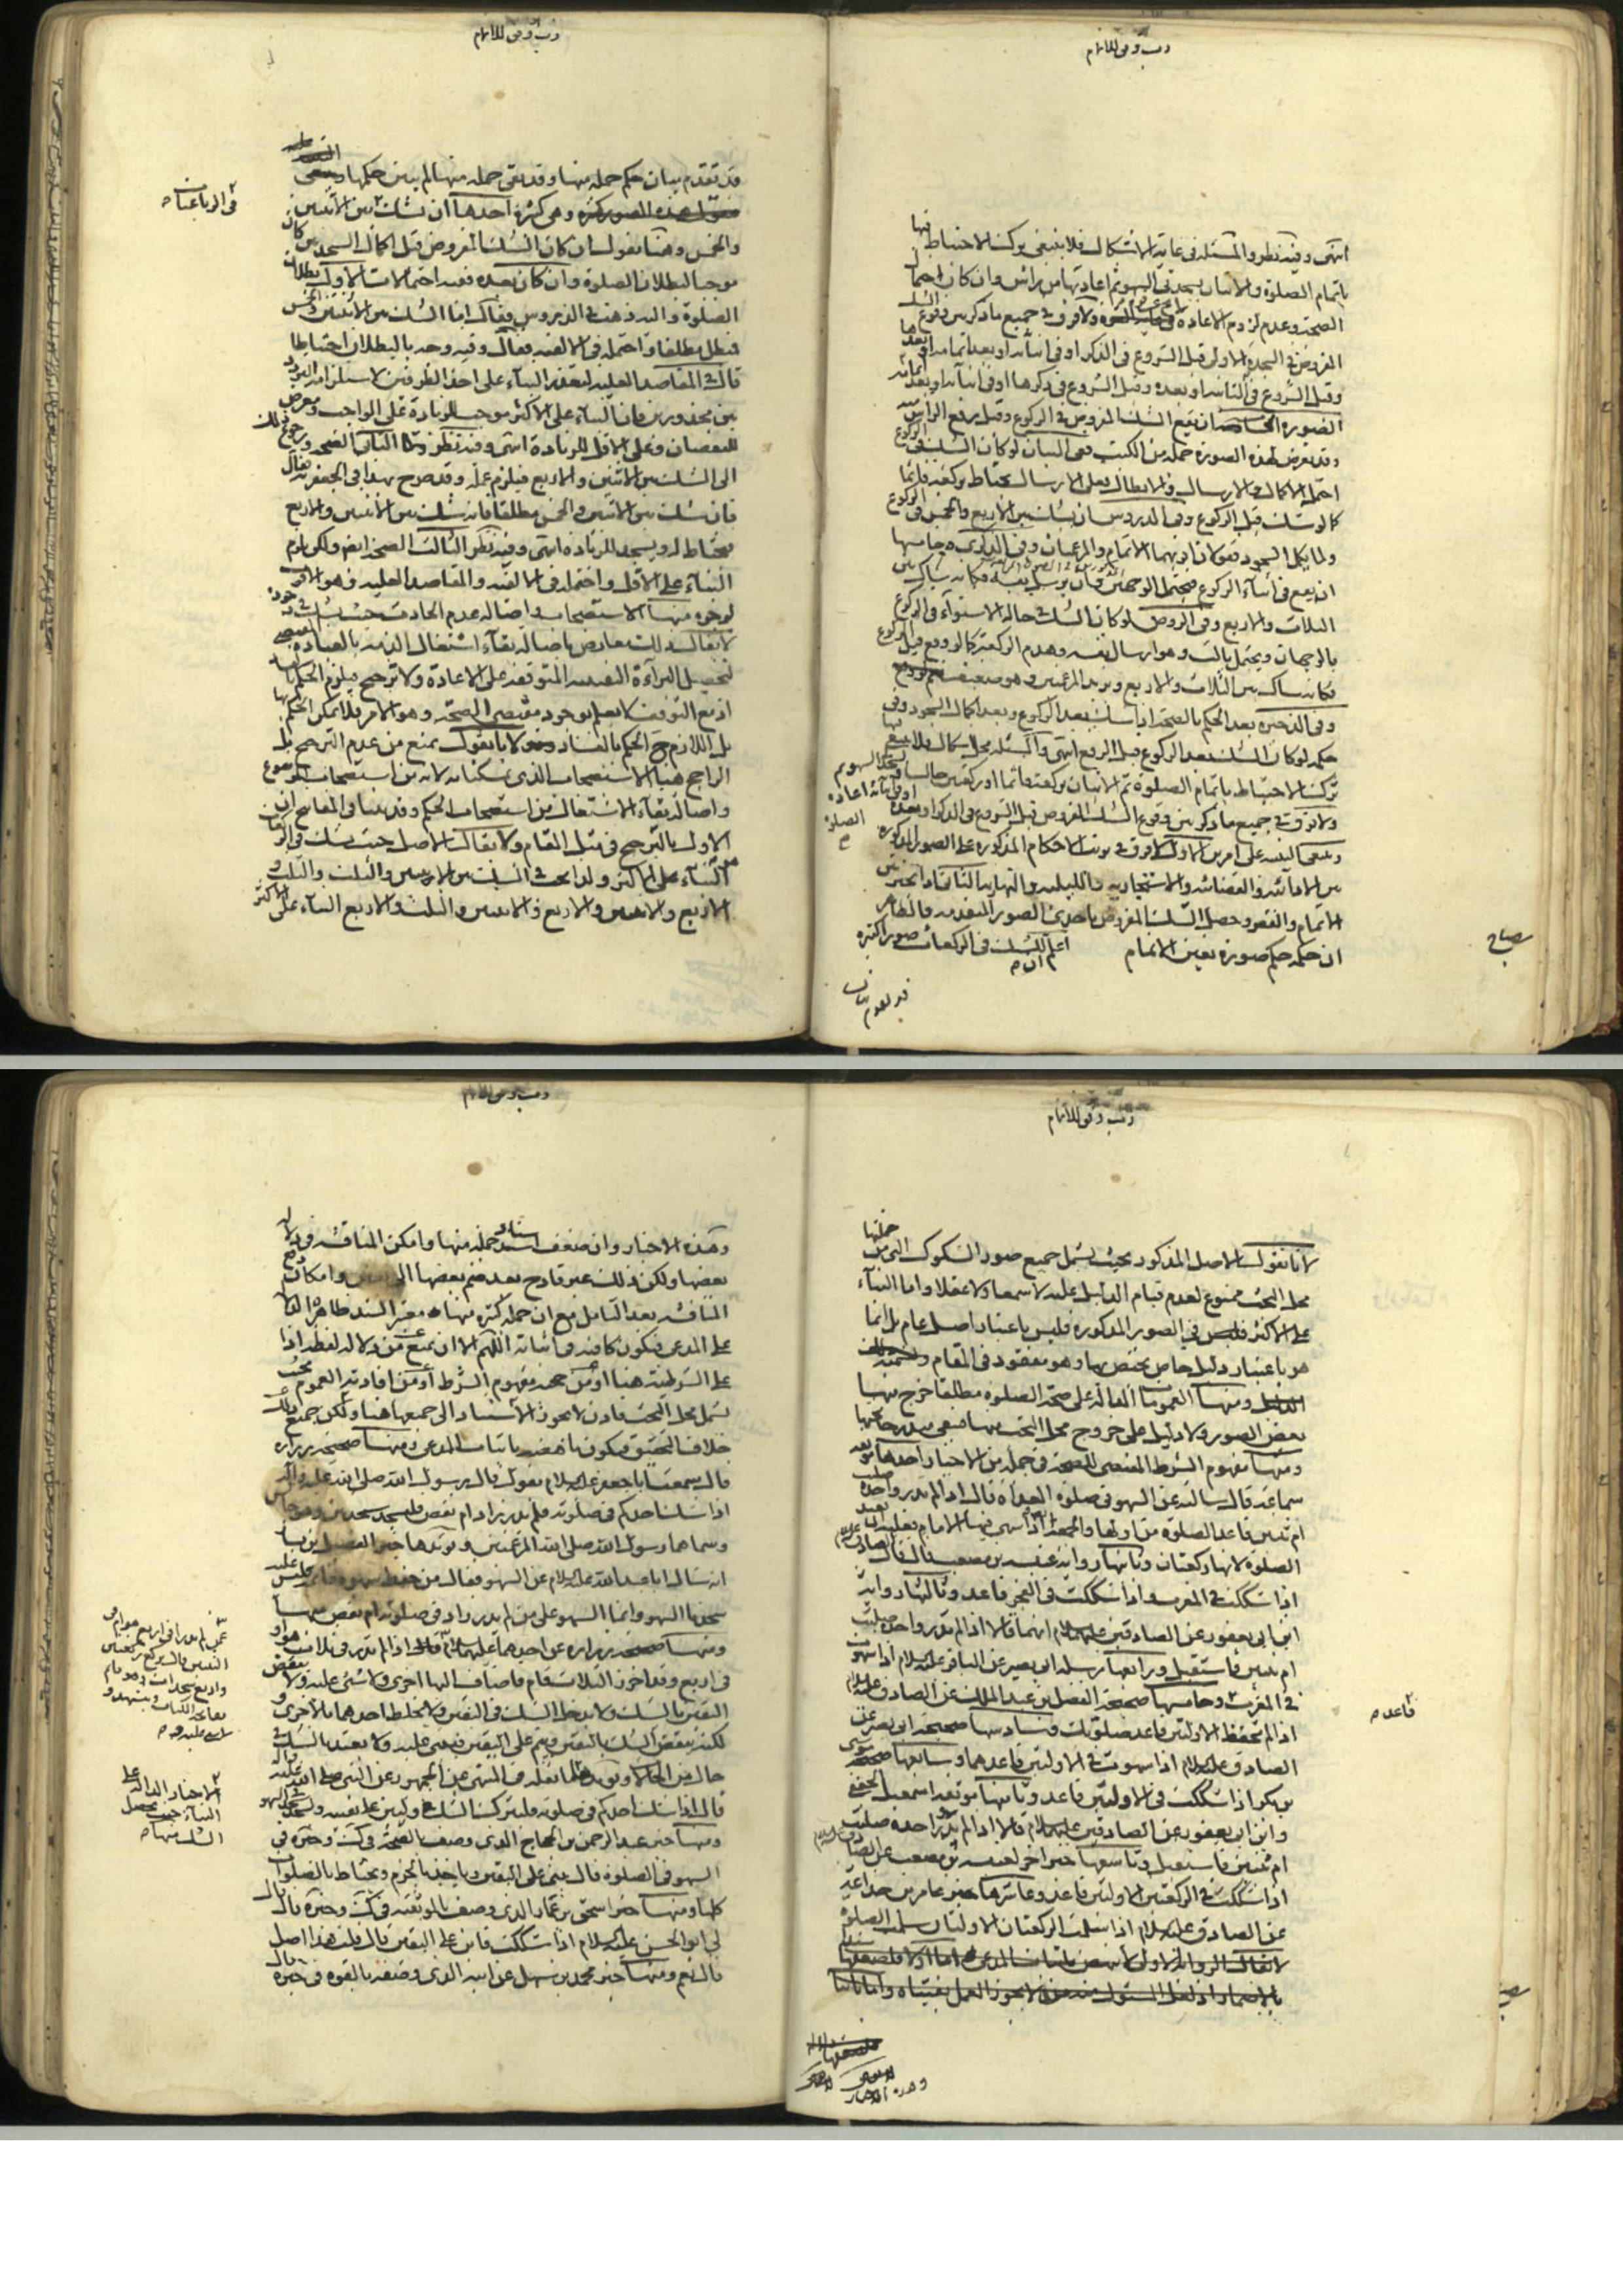 رب وفق للاتمام
انتهى وفيه نظر والمسئلة في غاية الاشكال فلا ينبغي ترك الاحتياط فيها
باتمام الصلوة والاتيان بسجدتي السهو ثم اعادتها من راس وان كان احتمال
الصحة وعدم لزوم الاعادة في غاية القوة ولا فرق في جميع ما ذكر بين وقوع الشك
المفروض في السجدة الاولى قبل الشروع في الذكر او في اثنائه او بعد اتمامه او بعدها
وقبل الشروع في الثانية او بعده وقبل الشروع في ذكرها او في اثنائه او بعد اتمامه
الصورة الخامسة ان يقع الشك المفروض في الركوع وقبل رفع الراس منه
وقد تعرض لهذه الصورة جملة من الكتب ففي البيان لو كان الشك في الركوع
احتمل الاكمال والارسال والابطال فعلى الارسال يحتاط بركعة قائما
كما لو شك قبل الركوع وفي الدروس ان شك بين الاربع والخمس في الركوع
ولما يكمل السجود فقولان اقربهما الاتمام والمرغمتان وفي
ان يقع في اثناء الركوع فيحتمل الوجهين وان يرسل نفسه فكانه شاك بين
الثلاث والاربع وفي الروض لو كان الشك حالة الاستواء في الركوع
بالوجهان ويحتمل ثالث وهو ارسال نفسه وهدم الركعة كما لو وقع قبل الركوع
فكانه شاك بين الثلاث والاربع ويزيد المرغمتين وهو ضعيف
وفي الذخيرة بعد الحكم بالصحة اذا شك بعد الركوع وبعد اكمال السجود وفي
حكمه لو كان الشك بعد الركوع قبل الرفع انتهى والمسئلة محل اشكال فلا ينبغي
ترك الاحتياط باتمام الصلوة ثم الاتيان بركعة قائما او ركعتين جالسا
ولا فرق في جميع ما ذكر بين وقوع الشك المفروض قبل الشروع في الذكر او بعده
وينبغي التنبيه على امرين الاول لا فرق في ترتب الاحكام المذكورة على الصور المذكورة
بين الادائية والقضائية والاستيجارية والليلية والنهارية الثاني اذا تخير بين
الاتمام والقصر وحصل الشك المفروض باحدى الصور المتقدمة فالظاهر
ان حكمه حكم صورة تعين الاتمام
اعلم ان للشك في الركعات صورا كثيرة
مصباح
قد تقدم بيان
رب وفق للاتمام
قد تقدم بيان حكم جملة منها وقد بقي جملة منها لم يبين حكمها
وهي كثيرة احدها ان يشك بين الاثنتين
في الرباعيات
والخمس وهنا نقول ان كان الشك المفروض قبل اكمال السجدتين كان
موجبا لبطلان الصلوة وان كان بعده ففيه احتمالات الاول بطلان
الصلوة واليه ذهب في الدروس فقال اما الشك بين الاثنتين والخمس
فتبطل مطلقا واحتمله في الالفية فقال وفيه وجه بالبطلان احتياطا
قال في المقاصد العلية لتعذر البناء على احد الطرفين لاستلزامه التردد
بين محذورين فان البناء على الاكثر موجب للزيادة على الواجب ومعرض
للنقصان وعلى الاقل للزيادة انتهى وفيه نظر الثاني الصحة ورجوع ذلك
الى الشك بين الاثنتين والاربع فيلزم عمله وقد صرح بهذا في الجعفرية فقال
فان شك بين الاثنتين والخمس مطلقا فانه شك بين الاثنتين والاربع
فيحتاط له ويسجد للزيادة انتهى وفيه نظر الثالث الصحة ايضا ولكن يلزم
البناء على الاقل واحتمله في الالفية والمقاصد العلية وهو الاقرب
لوجوه منها الاستصحاب واصالة عدم الحادث
لا يقال ذلك معارض باصالة بقاء اشتغال الذمة بالعبادة
لتحصيل البراءة اليقينية المتوقفة على الاعادة ولا ترجيح
بل اللازم ح الحكم بالفساد لانا نقول نمنع من عدم الترجيح بل
الراجح هنا الاستصحاب الذي تمسكنا به لانه من استصحاب الموضوع
واصالة بقاء الاشتغال من استصحاب الحكم وقد بينا في المفاتيح ان
الاول بالترجيح في مثل المقام ولا يقال الاصل حيث يشك في الركعات
البناء على الاكثر ولذا يجب في الشك بين الاثنتين والثلث والثلث و
الاربع والاثنتين والاربع والاثنتين والثلث والاربع البناء على الاكثر
رب وفق للاتمام
لانا نقول الاصل المذكور بحيث يشمل جميع صور الشكوك التي من جملتها
محل البحث ممنوع لعدم قيام الدليل عليه لا سمعا ولا عقلا واما البناء
على الاكثر في الصور المذكورة فليس باعتبار اصل عام بل انما
هو باعتبار دليل خاص يختص بها وهو مفقود في المقام
ومنها العمومات الدالة على صحة الصلوة مطلقا خرج منها
بعض الصور ولا دليل على خروج محل البحث منها فيبقى مندرجا تحتها
ومنها مفهوم الشرط المقتضي للصحة في جملة من الاخبار احدها موثقة
سماعة قال سالته عن السهو في صلوة الغداة قال اذا لم تدر واحدة صليت
ام ثنتين فاعد الصلوة من اولها والجمعة ايضا اذا سهى فيها الامام فعليه ان يعيد
الصلوة لانها ركعتان وثانيها رواية عنبسة بن مصعب قال قال الصادق عليه السلام
اذا شككت في المغرب فاعد واذا شككت في الفجر فاعد وثالثها رواية
ابن ابي يعفور عن الصادقين عليهما السلام انهما قالا اذا لم تدر واحدة صليت
ام ثنتين فاستقبل ورابعها مرسلة ابي بصير عن الباقر عليه السلام اذا سهوت
في المغرب فاعد وخامسها صحيحة الفضل بن عبد الملك عن الصادق عليه السلام
اذا لم تحفظ الاولتين فاعد صلوتك وسادسها صحيحة ابي بصير عن
الصادق عليه السلام اذا سهوت في الاولتين فاعدهما وسابعها
بن بكر اذا شككت في الاولتين فاعد وثامنها موثقة اسمعيل الجعفي
وابن ابي يعفور عن الصادقين عليهما السلام قالا اذا لم تدر واحدة صليت
ام ثنتين فاستقبل وتاسعها خبر اخر لعنبسة بن مصعب عن الصادق عليه السلام
اذا شككت في الركعتين الاولتين فاعد وعاشرها خبر عامر بن جذاعة
عن الصادق عليه السلام اذا سلمت الركعتان الاولتان سلمت الصلوة
وهذه الاخبار
رب وفق للاتمام
وهذه الاخبار وان ضعف اسناد جملة منها وامكن المناقشة في دلالة
بعضها ولكن ذلك غير قادح بعد ضم بعضها الى بعض وامكان دفع
المناقشة بعد التامل مع ان جملة كثيرة منها معتبر السند ظاهرة الدلالة
على المدعى فتكون كافية في اثباته اللهم الا ان يمنع من دلالة لفظة اذا
على الشرطية هنا او من حجية مفهوم الشرط او من افادته العموم بحيث
يشمل محل البحث فاذن لا يجوز الاستناد الى جميعها هنا ولكن جميع ذلك
خلاف التحقيق فيكون ناهضة باثبات المدعى ومنها صحيحة زرارة
قال سمعت ابا جعفر عليه السلام يقول قال رسول الله صلى الله عليه واله
اذا شك احدكم في صلوته فلم يدر زاد ام نقص فليسجد سجدتين وهو جالس
وسماهما رسول الله صلى الله المرغمتين ويؤيدها خبر الفضيل بن يسار
انه سال ابا عبد الله عليه السلام عن السهو فقال من حفظ سهوه فاتمه فليس عليه
سجدتا السهو وانما السهو على من لم يدر زاد في صلوته ام نقص منها
ومنها صحيحة زرارة عن احدهما عليهما السلام قال اذا لم يدر في ثلاث هو او
في اربع وقد احرز الثلاث قام فاضاف اليها اخرى ولا شئ عليه ولا ينقض
اليقين بالشك ولا يدخل الشك في اليقين ولا يخلط احدهما بالاخرى و
لكنه ينقض الشك باليقين ويتم على اليقين فيبنى عليه ولا يعتد بالشك في
حال من الحالات ويؤيد ما نقله في المنتهى عن الجمهور عن النبي صلى الله عليه واله
قال اذا شك احدكم في صلوته فليترك الشك وليبن على يقينه وليسجد سجدتي السهو
ومنها خبر عبد الرحمن بن الحجاج الذي وصف بالصحة في كتب وخيره في
السهو في الصلوة قال يبنى على اليقين وياخذ بالجزم ويحتاط بالصلوات
كلها ومنها خبر اسحق بن عمار الذي وصف بالموثقية في كتب وخيره قال قال
لي ابو الحسن عليه السلام اذا شككت فابن على اليقين قال قلت هذا اصل
قال نعم ومنها خبر محمد بن سهل عن ابيه الذي وصفه بالقوة في خيره قال
الاخبار الدالة على
البناء حيث يحصل
الشك منها